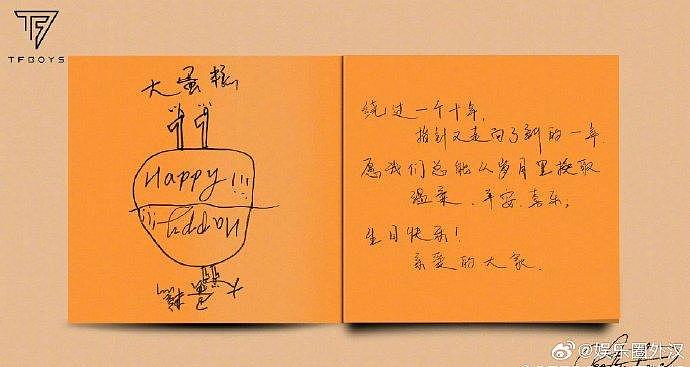 TFBOYS
大蛋糕
Happy!!!
Happy!!!
大蛋糕
绕过一个十年,
指针又走向了新的一年.
愿我们总能从岁月里换取
温柔、平安、喜乐。
生日快乐!
亲爱的大家.
@娱乐圈外汉